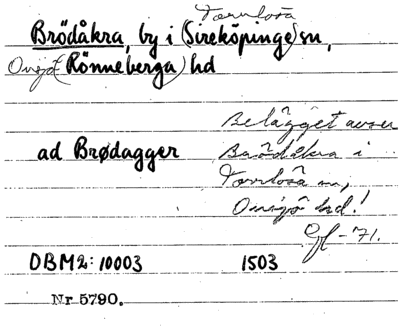 Torrlösa
Brödåkra, by i (Sireköpinge) sn,
Onsjö (Rönneberga) hd
Belägget avser
ad Brødagger Brödåkra i
Torrlösa sn,
Onsjö hd!
Gfl -71.
DBM2: 10003 1503
Nr 5790.